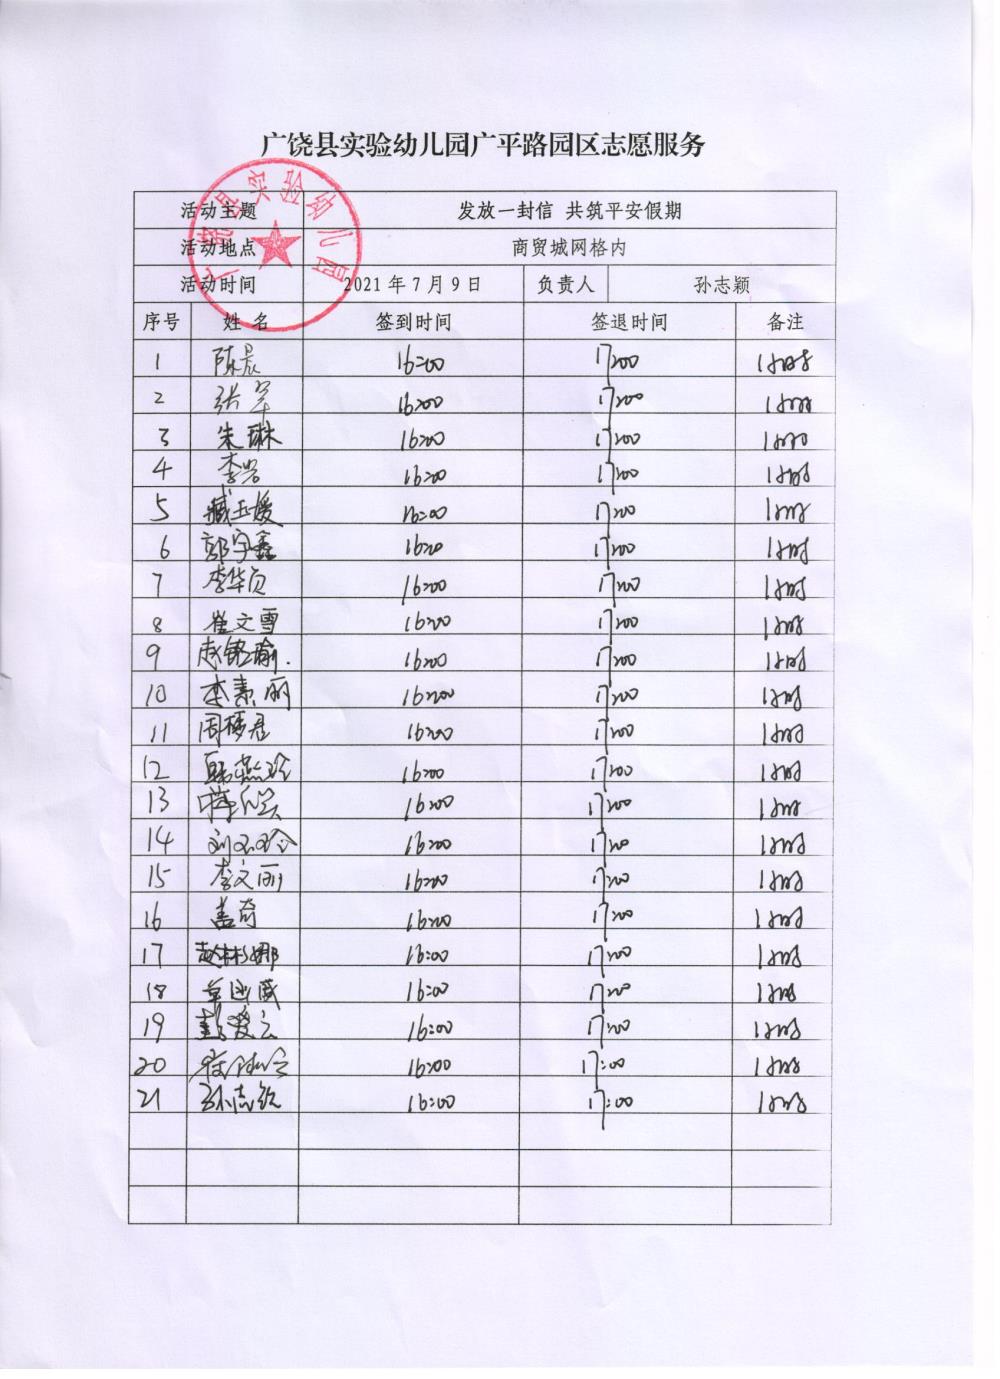 广饶县实验幼儿园广平路园区志愿服务
广饶县实验幼儿园
活动主题 发放一封信 共筑平安假期
活动地点 商贸城网格内
活动时间 2021年7月9日 负责人 孙志颖
序号 姓名 签到时间 签退时间 备注
1 陈晨 16:00 17:00 1小时
2 张军 16:00 17:00 1小时
3 朱琳 16:00 17:00 1小时
4 李岩 16:00 17:00 1小时
5 臧玉媛 16:00 17:00 1小时
6 郭宇鑫 16:00 17:00 1小时
7 李华贞 16:00 17:00 1小时
8 崔文雪 16:00 17:00 1小时
9 赵铭瑜 16:00 17:00 1小时
10 李素丽 16:00 17:00 1小时
11 周梦君 16:00 17:00 1小时
12 燕玲 16:00 17:00 1小时
13 16:00 17:00 1小时
14 刘玲 16:00 17:00 1小时
15 李文丽 16:00 17:00 1小时
16 盖奇 16:00 17:00 1小时
17 赵彬娜 16:00 17:00 1小时
18 16:00 17:00 1小时
19 彭爱云 16:00 17:00 1小时
20 16:00 17:00 1小时
21 孙志钦 16:00 17:00 1小时